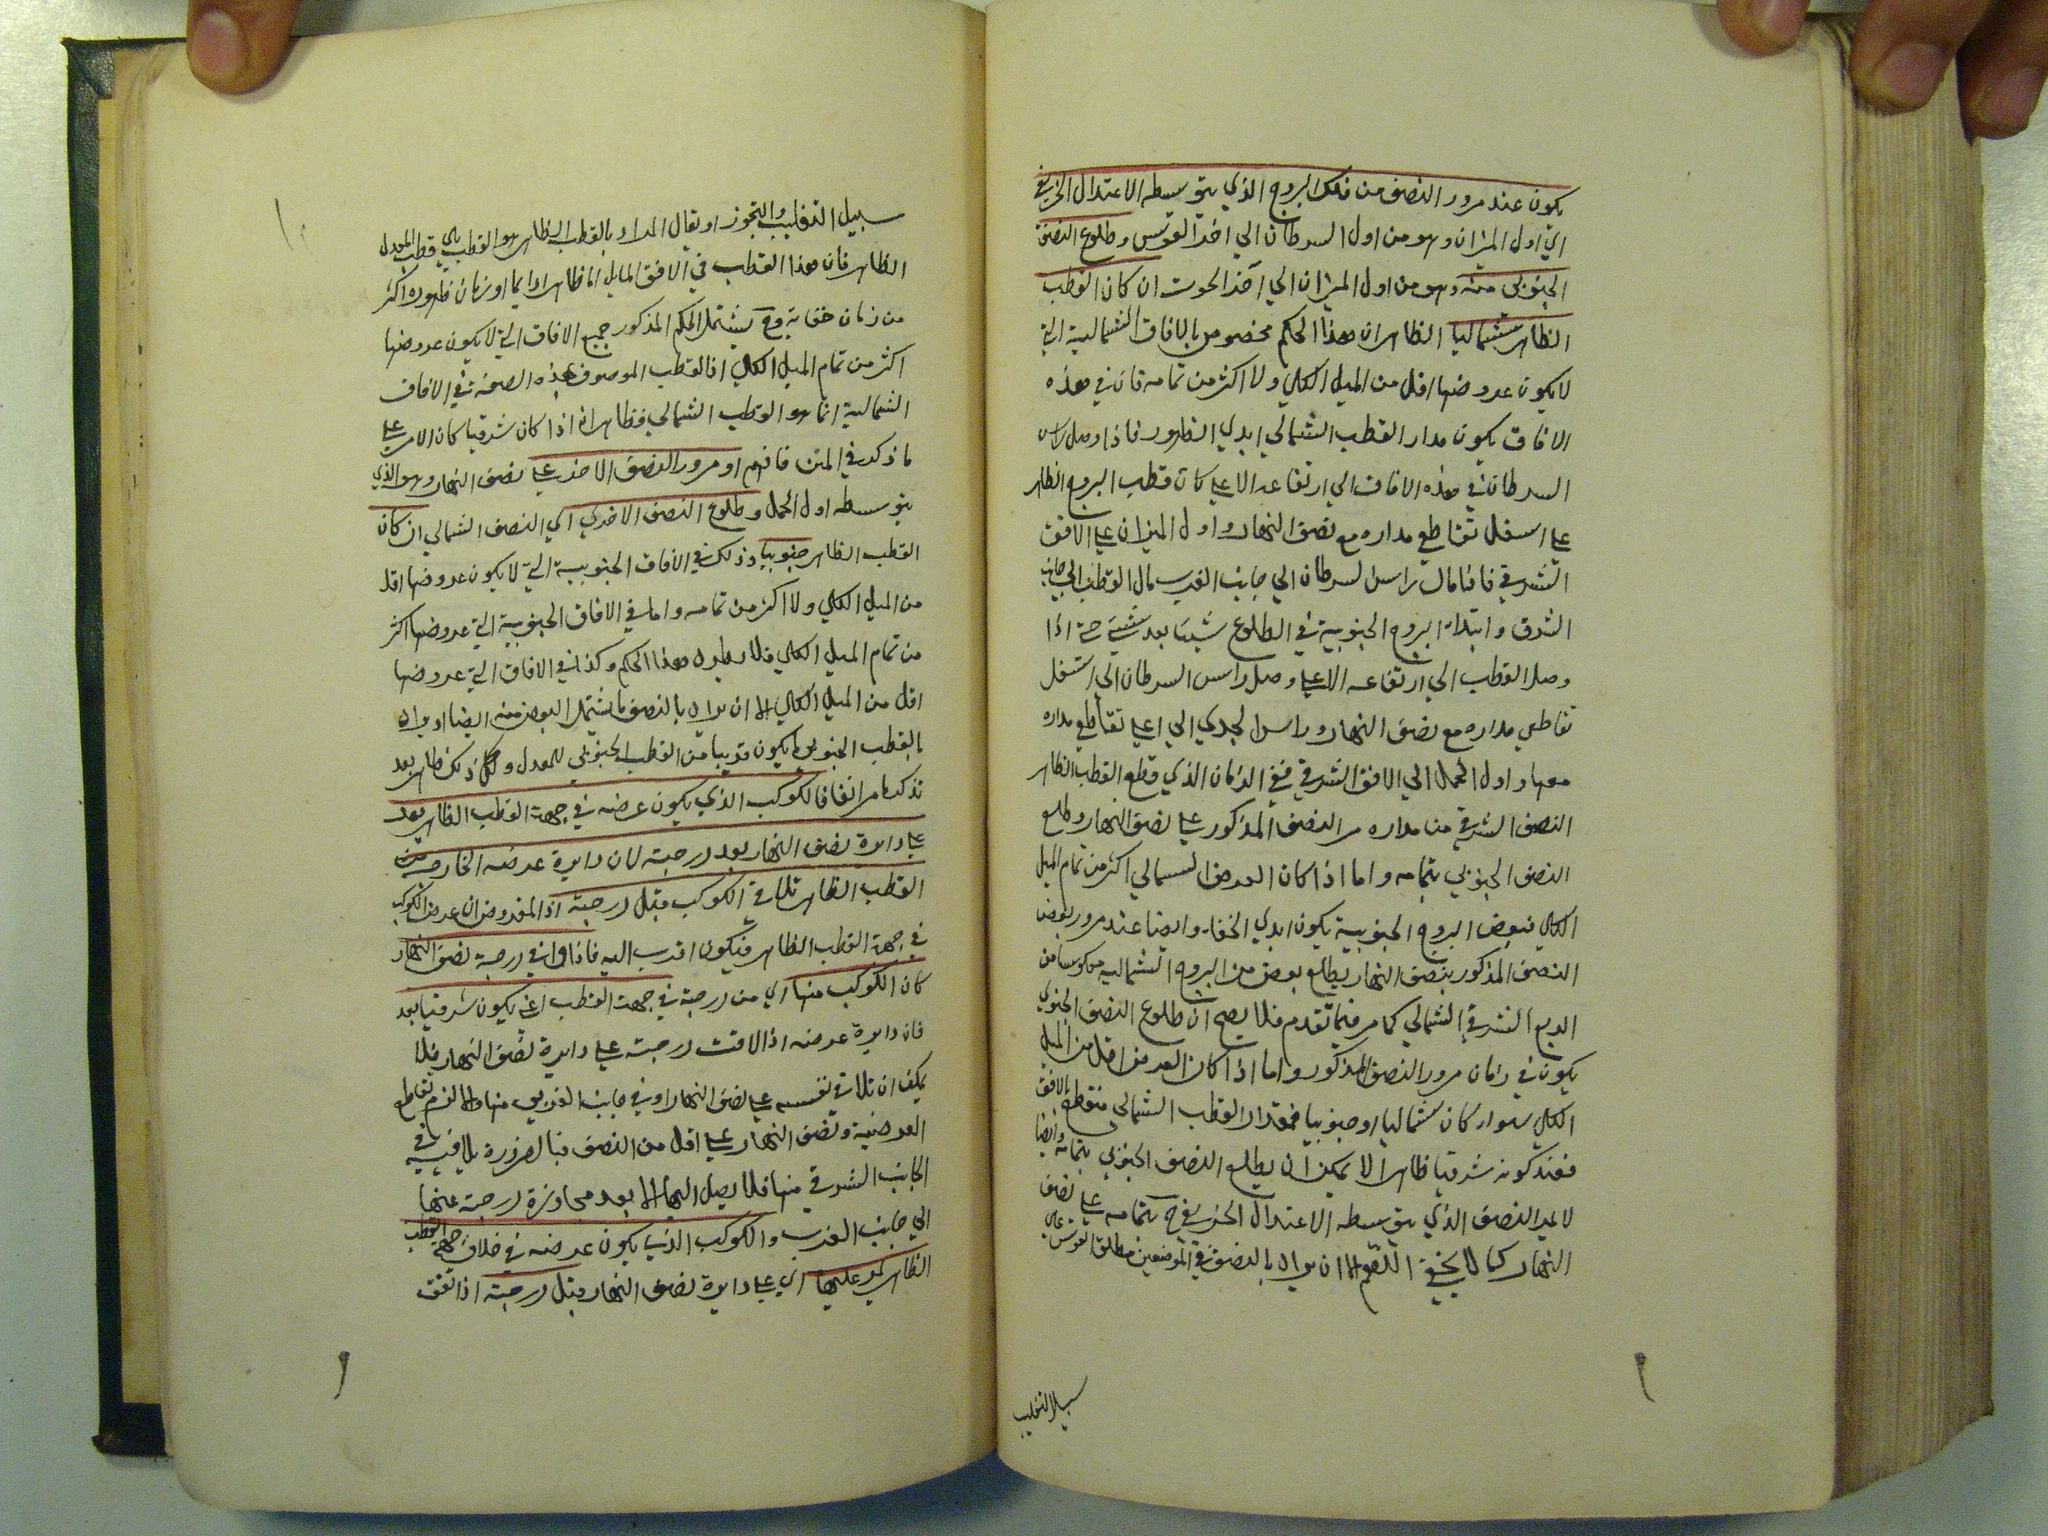 يكون عند مرور النصف من فلك البروج الذي يتوسطه الاعتدال الخريفي
اي اول الميزان وهو من اول السرطان الي اخر القوس وطلوع النصف
الجنوبي منه وهو من اول الميزان الي آخر الحوت ان كان القطب
الظاهر شماليا الظاهر ان هذا الحكم مخصوص بالافاق الشمالية التي
لا يكون عروضها اقل من الميل الكلي ولا اكثر من تمامه فان في هذه
الافاق يكون مدار القطب الشمالي ابدي الظهور فاذا وصل راس
السرطان في هذه الافاق الي ارتفاعه الاعلي كان قطب البروج الظاهر
علي اسفل تقاطع مداره مع نصف النهار واول الميزان علي الافق
الشرقي فاذا مال راس السرطان الي جانب الغرب مال القطب الي جانب
الشرق وابتدات البروج الجنوبية في الطلوع شيئا بعد شيئ حتي اذا
وصل القطب الي ارتفاعه الاعلي وصل راس السرطان الي اسفل
تقاطعي مداره مع نصف النهار وراس الجدي الي اعلي تقاطعي مداره
معها واول الحمل الي الافق الشرقي ففي الزمان الذي قطع القطب الظاهر
النصف الشرقي من مداره مر النصف المذكور علي نصف النهار وطلع
النصف الجنوبي بتمامه واما اذا كان العرض الشمالي اكثر من تمام الميل
الكلي فبعض البروج الجنوبية يكون ابدي الخفاء وايضا عند مرور بعض
النصف المذكور بنصف النهار يطلع بعض من البروج الشمالية معكوسا من
الربع الشرقي الشمالي كما مر فيما تقدم فلا يصح ان طلوع النصف الجنوبي
يكون في زمان مرور النصف المذكور واما اذا كان العرض اقل من الميل
الكلي سواء كان شماليا او جنوبيا فمدار القطب الشمالي منقطع بالافق
فعند كونه شرقيا ظاهرا لا يمكن ان يطلع النصف الجنوبي بتمامه وايضا
لا يمر النصف الذي يتوسطه الاعتدال الخريفي بتمامه علي نصف
النهار كما لا يخفي اللهم الا ان يراد بالنصف في الموضعين مطلق القوس علي
سبيل التغليب
سبيل التغليب والتجوز او يقال المراد بالقطب الظاهر هو القطب يلي قطب المعدل
الظاهر فان هذا القطب في الافق المايل اما ظاهر ابدا دايما او زمان ظهوره اكثر
من زمان خفائه وح يشتمل الحكم المذكور جميع الافاق التي لا يكون عروضها
اكثر من تمام الميل الكلي اذ القطب الموصوف بهذه الصفة في الافاق
الشمالية انما هو القطب الشمالي فظاهر انه اذا كان شرقيا كان الامر علي
ما ذكر في المتن فافهم او مرور النصف الاخر علي نصف النهار وهو الذي
يتوسطه اول الحمل وطلوع النصف الاخر اي النصف الشمالي ان كان
القطب الظاهر جنوبيا وذلك في الافاق الجنوبية التي لا يكون عروضها اقل
من الميل الكلي ولا اكثر من تمامه واما في الافاق الجنوبية التي عروضها اكثر
من تمام الميل الكلي فلا يطرد هذا الحكم وكذا في الافاق التي عروضها
اقل من الميل الكلي الا ان يراد بالنصف ما يشتمل البعض منه ايضا او يراد
بالقطب الجنوبي ما يكون قريبا من القطب الجنوبي للمعدل وكل ذلك ظاهر بعد
تذكر ما مر انفا فالكوكب الذي يكون عرضه في جهة القطب الظاهر يمر
علي دايرة نصف النهار بعد درجته لان دايرة عرضه الخارجة من
القطب الظاهر تلاقي الكوكب قبل درجته اذ المفروض ان عرض الكوكب
في جهة القطب الظاهر فيكون اقرب اليه فاذا وافي درجته نصف النهار
كان الكوكب منها اي من درجته في جهة القطب اعني يكون شرقيا بعد
فان دايرة عرضه اذا لاقت درجته علي دايرة نصف النهار فلا
يمكن ان تلاقي نفسه علي نصف النهار او في جانب الغربي منها والا لزم تقاطع
العرضية ونصف النهار علي اقل من النصف فبالضرورة يلاقيه في
الجانب الشرقي منها فلا يصل اليها الا بعد مجاوزة درجته عنها
الي جانب الغرب والكوكب الذي يكون عرضه في خلاف جهة القطب
الظاهر يمر عليها اي علي دايرة نصف النهار قبل درجته اذ اتفق